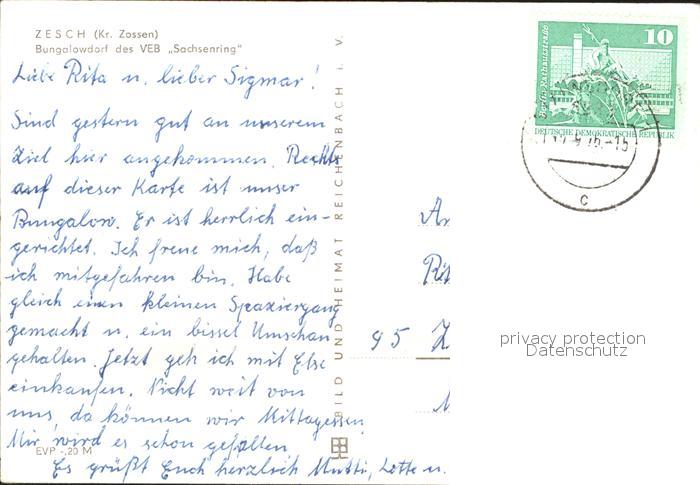 ZESCH (Kr. Zossen)
Bungalowdorf des VEB „Sachsenring"
Liebe Rita u. lieber Sigmar!
Sind gestern gut an unserem
Ziel hier angekommen. Rechts
auf dieser Karte ist unser
Bungalow. Er ist herrlich ein-
gerichtet. Ich freue mich, daß
ich mitgefahren bin. Habe
gleich einen kleinen Spaziergang
gemacht u. ein bissel Umschau
gehalten. Jetzt geh ich mit Else
einkaufen. Nicht weit von
uns, da können wir Mittagessen.
Mir wird es schon gefallen.
EVP -,20 M
Es grüßt Euch herzlich Mutti, Lotte u.
BILD UND HEIMAT REICHENBACH i. V.
10
Berlin, Rathausstraße
DEUTSCHE DEMOKRATISCHE REPUBLIK
c
An
Rit
95 Z
privacy protection
Datenschutz